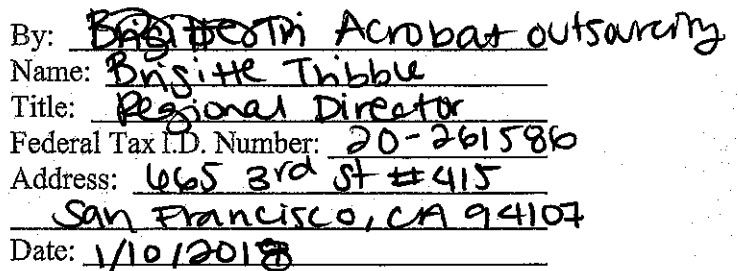 By: Acrobat outsourcing
Name: Brigitte Tribble
Title: Regional Director
Federal Tax I.D. Number: 20-261586
Address: 665 3rd St #415
San Francisco, CA 94107
Date: 1/10/2018